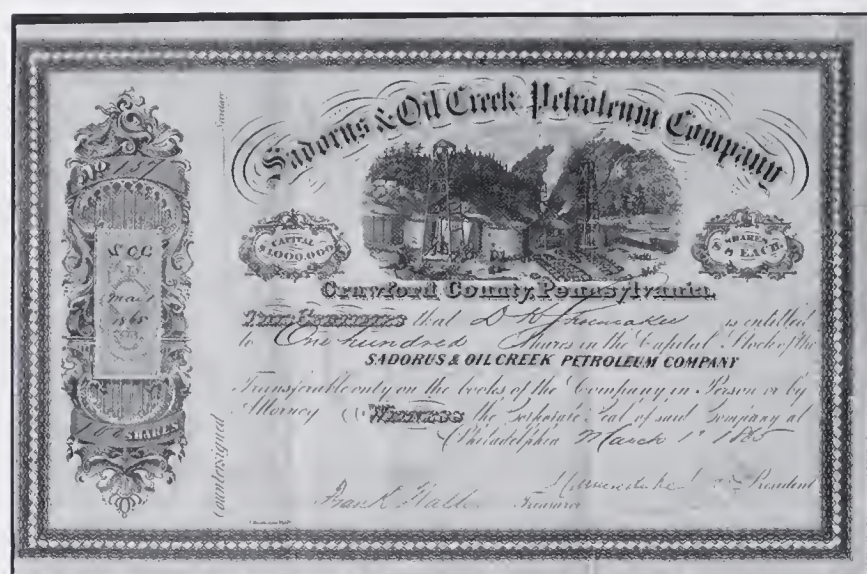 Sadorus & Oil Creek Petroleum Company
CAPITAL
$1,000,000
SHARES
EACH
Crawford County, Pennsylvania.
This Certifies that D K Shoemaker is entitled
to One hundred Shares in the Capital Stock of the
SADORUS & OIL CREEK PETROLEUM COMPANY
Transferable only on the books of the Company in Person or by
Attorney Witness the Corporate Seal of said Company at
Philadelphia March 1st 1865
President
Frank
Treasurer
No
Mar 1
1865
100 SHARES
Countersigned